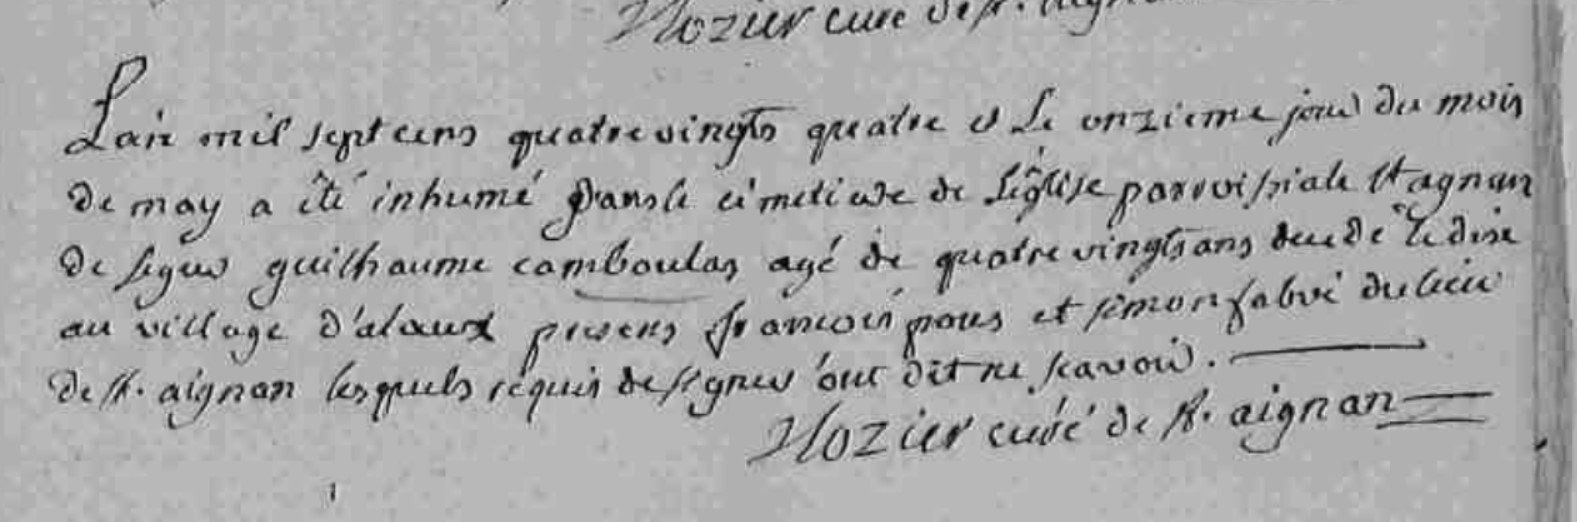 Nozier curé de st. aign
Lan mil sept cens quatre vingts quatre & Le onzieme jour du mois
de may a été inhumé dans le cimetiere de Léglise parroissiale st agnan
de segur guilhaume camboulas agé de quatre vingts ans decedé le dixe
au village d'alaux presens francois pous et simon fabré du lieu
de st. aignan lesquels requis de signer ont dit ne scavoir.
Nozier curé de st. aignan